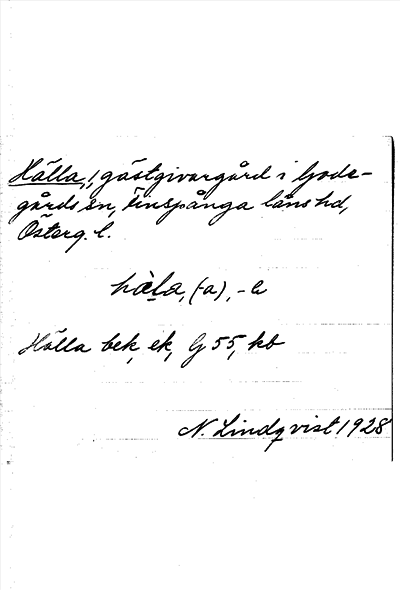 Hälla, gästgivargård i Gode-
gårds sn, Finspånga läns hd,
Österg. l.
hàla, (-a), -a
Hälla bek, ek, G 55, kb
N. Lindqvist 1928